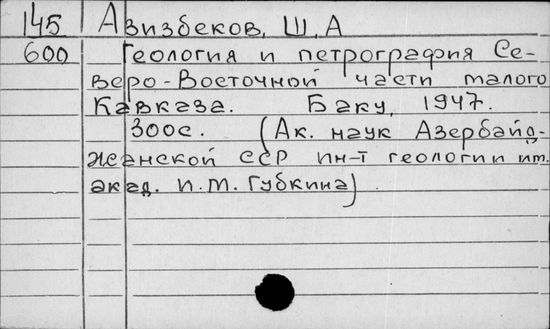 145 Авизбеков, Ш. А
600 Геология и петрография Се-
веро-Восточной части малого
Кавказа. Баку, 1947.
300с. (Ак. наук Азербайд-
жанской ССР ин-т геологии им.
акад. И.М. Губкина)